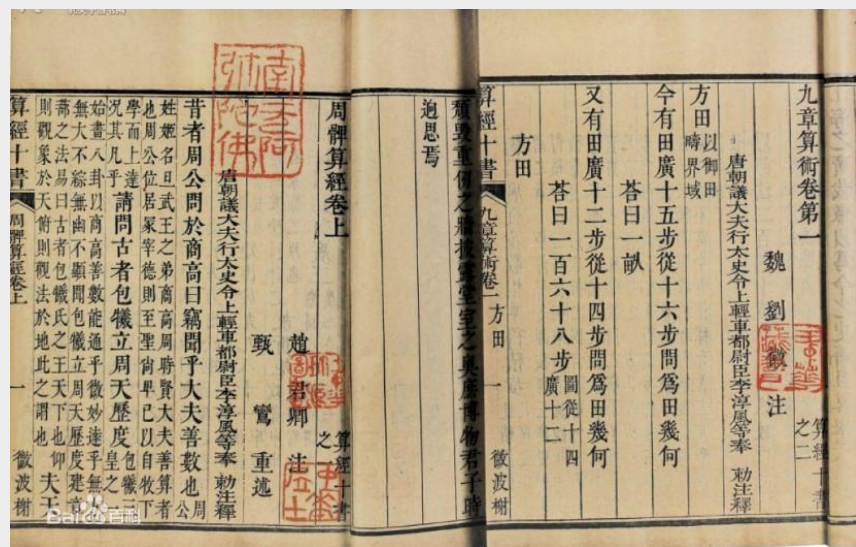 九章算術卷第一
魏 劉 注 算經十書之二
唐朝議大夫行太史令上輕車都尉臣李淳風等奉 勅注釋
方田以御田疇界域
今有田廣十五步從十六步問爲田幾何
荅曰一畝
又有田廣十二步從十四步問爲田幾何
荅曰一百六十八步圖從十四廣十二
方田
算經十書 九章算術卷一 方田 一 微波榭
頹毀重仞之牆披露堂室之奥庶博物君子時
迥思焉
周髀算經卷上 算經十書之
趙君卿 注
甄鸞 重述
唐朝議大夫行太史令上輕車都尉臣李淳風等奉 勅注釋
昔者周公問於商高曰竊聞乎大夫善數也周公
姓姬名旦武王之弟商高周時賢大夫善算者
也周公位居冢宰德則至聖尚卑已以自牧下
學而上達況其凡乎請問古者包犧立周天歷度包犧三皇之
始畫八卦以商高善數能通乎微妙達乎無
無大不綜無幽不顯聞包犧立周天歷度建章
蔀之法易曰古者包犧氏之王天下也仰
則觀象於天俯則觀法於地此之謂也夫天
算經十書 周髀算經卷上 一 微波榭
南无阿弥陀佛
Baidu百科